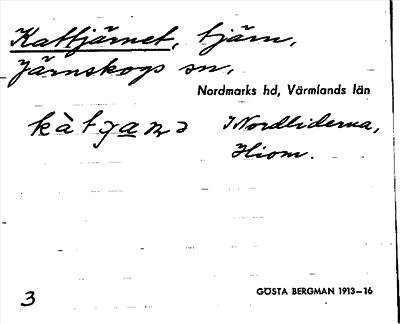 Kattjärnet, tjärn,
Järnskogs sn.
Nordmarks hd, Värmlands län
I Nordliderna,
Hiom.
3
GÖSTA BERGMAN 1913-16